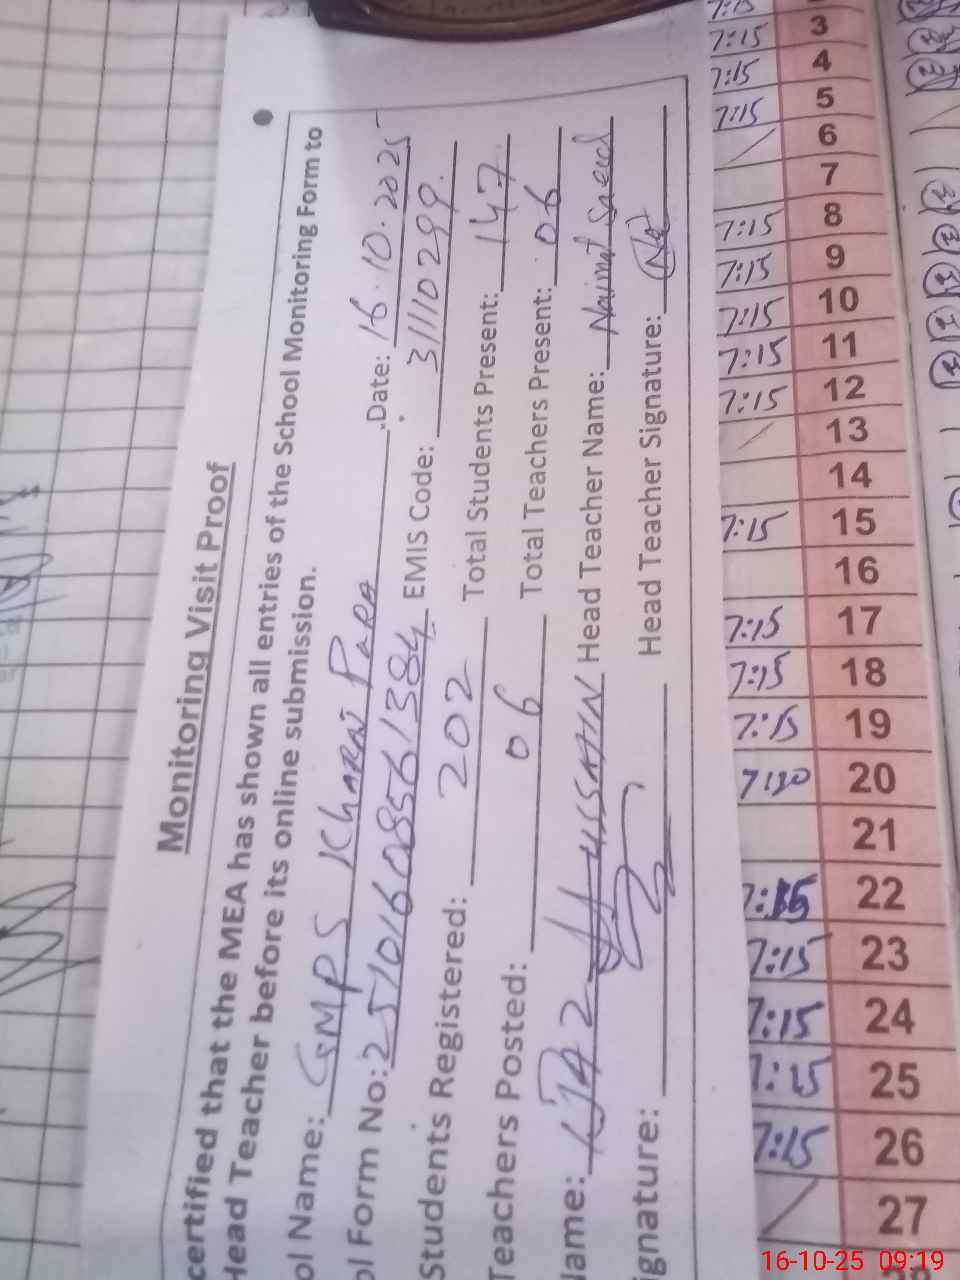 Monitoring Visit Proof
certified that the MEA has shown all entries of the School Monitoring Form to
Head Teacher before its online submission.
ol Name: GMPS Kharai Para Date: 16.10.2025
ol Form No: 2510160856138 EMIS Code: 31110299.
Students Registered: 202 Total Students Present: 147
Teachers Posted: 06 Total Teachers Present: 06
Name: IJAZ HUSSAIN Head Teacher Name: Naimat Saeed
ignature: Head Teacher Signature:
7:15
7:15 3
7:15 4
7:15 5
6
7
7:15 8
7:15 9
7:15 10
7:15 11
7:15 12
13
14
7:15 15
16
7:15 17
7:15 18
7:15 19
7:20 20
21
7:15 22
7:15 23
7:15 24
7:15 25
7:15 26
27
16-10-25 09:19